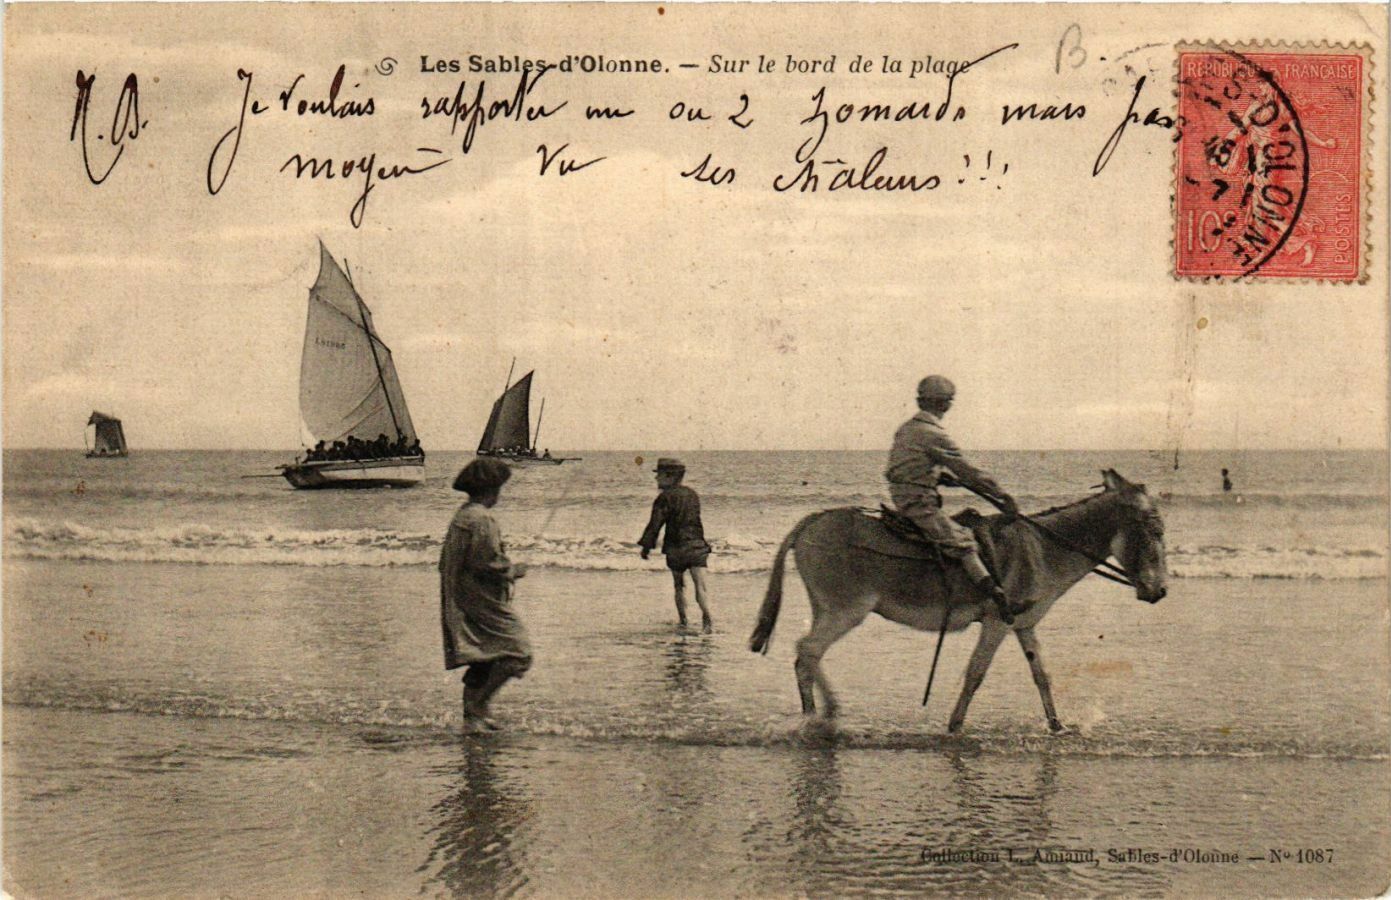 Les Sables-d'Olonne. — Sur le bord de la plage
B.
N.B. Je voulais rapporter un ou 2 homards mais pas
moyen vu ses châleurs!!!
RÉPUBLIQUE FRANÇAISE
10c
POSTES
S-D'OLONNE
Collection L. Amiaud, Sables-d'Olonne — Nº 1087